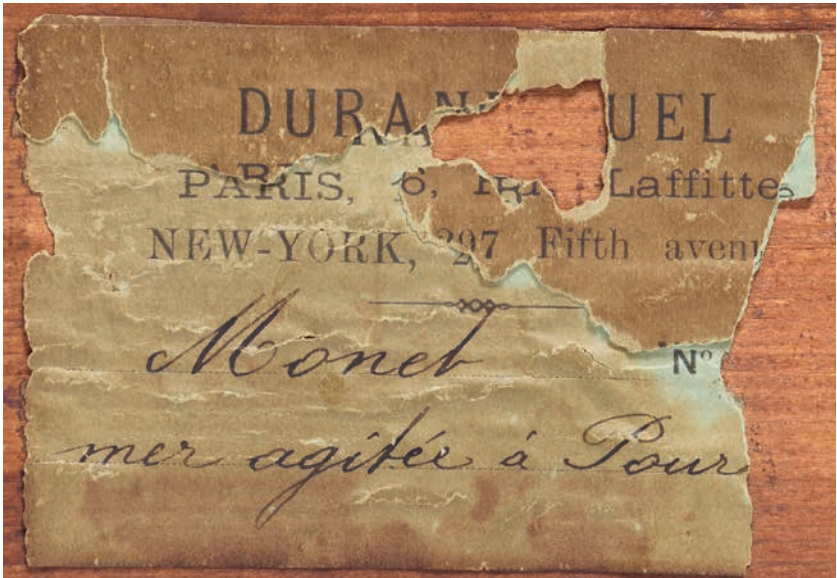 DURAN UEL
PARIS, 6, Laffitte
NEW-YORK, 297 Fifth avenu
Monet Nº
mer agitée à Pour